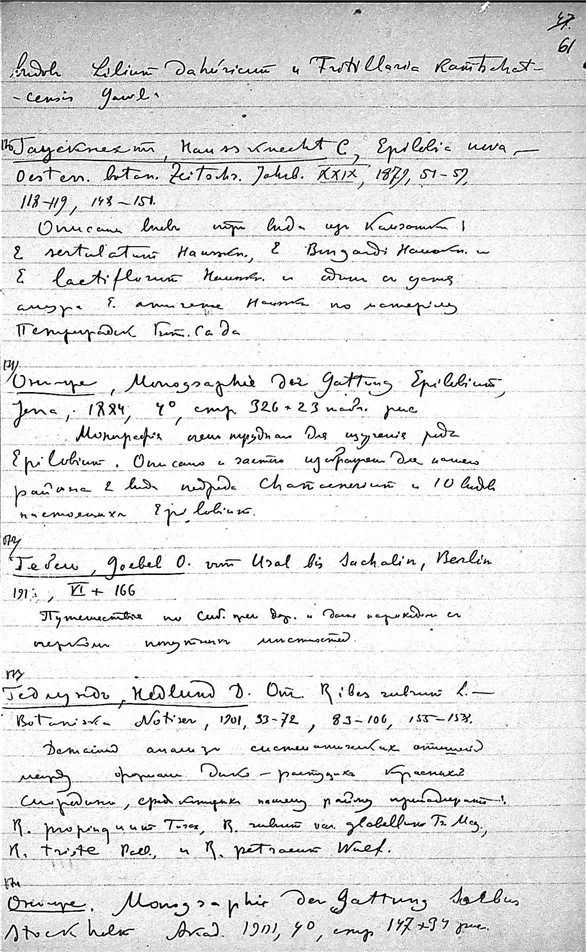 47.
61
видов Lilium dahuricum и Fritillaria Kamtschat-
-censis Gawl.
170 Гаускнехт, Haussknecht C, Epilobia nova —
Oesterr. botan. Zeitschr. Jahrb. XXIX, 1879, 51-59,
118-119, 148-151.
Описаны вновь три вида из Камчатки:
E sertulatum Hausskn., E Bongardi Hausskn. и
E lactiflorum Haussk. и один с устья
амура E. Haussk по материалу
Бот. сада
171 Он-же, Monographie der Gattung Epilobium,
Jena, 1884, 4°, стр 326 + 23 табл. рис
Монография для изучения рода
Epilobium. Описано и частью для нашего
района 2 вида подрода Chamaenerium и 10 видов
настоящих Epilobium.
172 Гебель, Goebel O. vom Ural bis Sachalin, Berlin
VI + 166
Путешествие по Сиб. жел дор. и далее пароходом с
очерком попутных местностей
173 Гедлундъ, Hedlund D. Om Ribes rubrum L.—
Botaniska Notiser, 1901, 33-72, 83-106,
анализ систематических отношений
между формами дико-растущих красной
смородины, среди которых нашему району принадлежат:
R. propinquum Turcz, R. rubrum var. glabellum Tr Mey,
R. triste Pall, и R. petraeum Wulf.
174
Он-же. Monographie der Gattung Sorbus
Stockholm Akad. 1901, 4°, стр 147 + 34 рис.